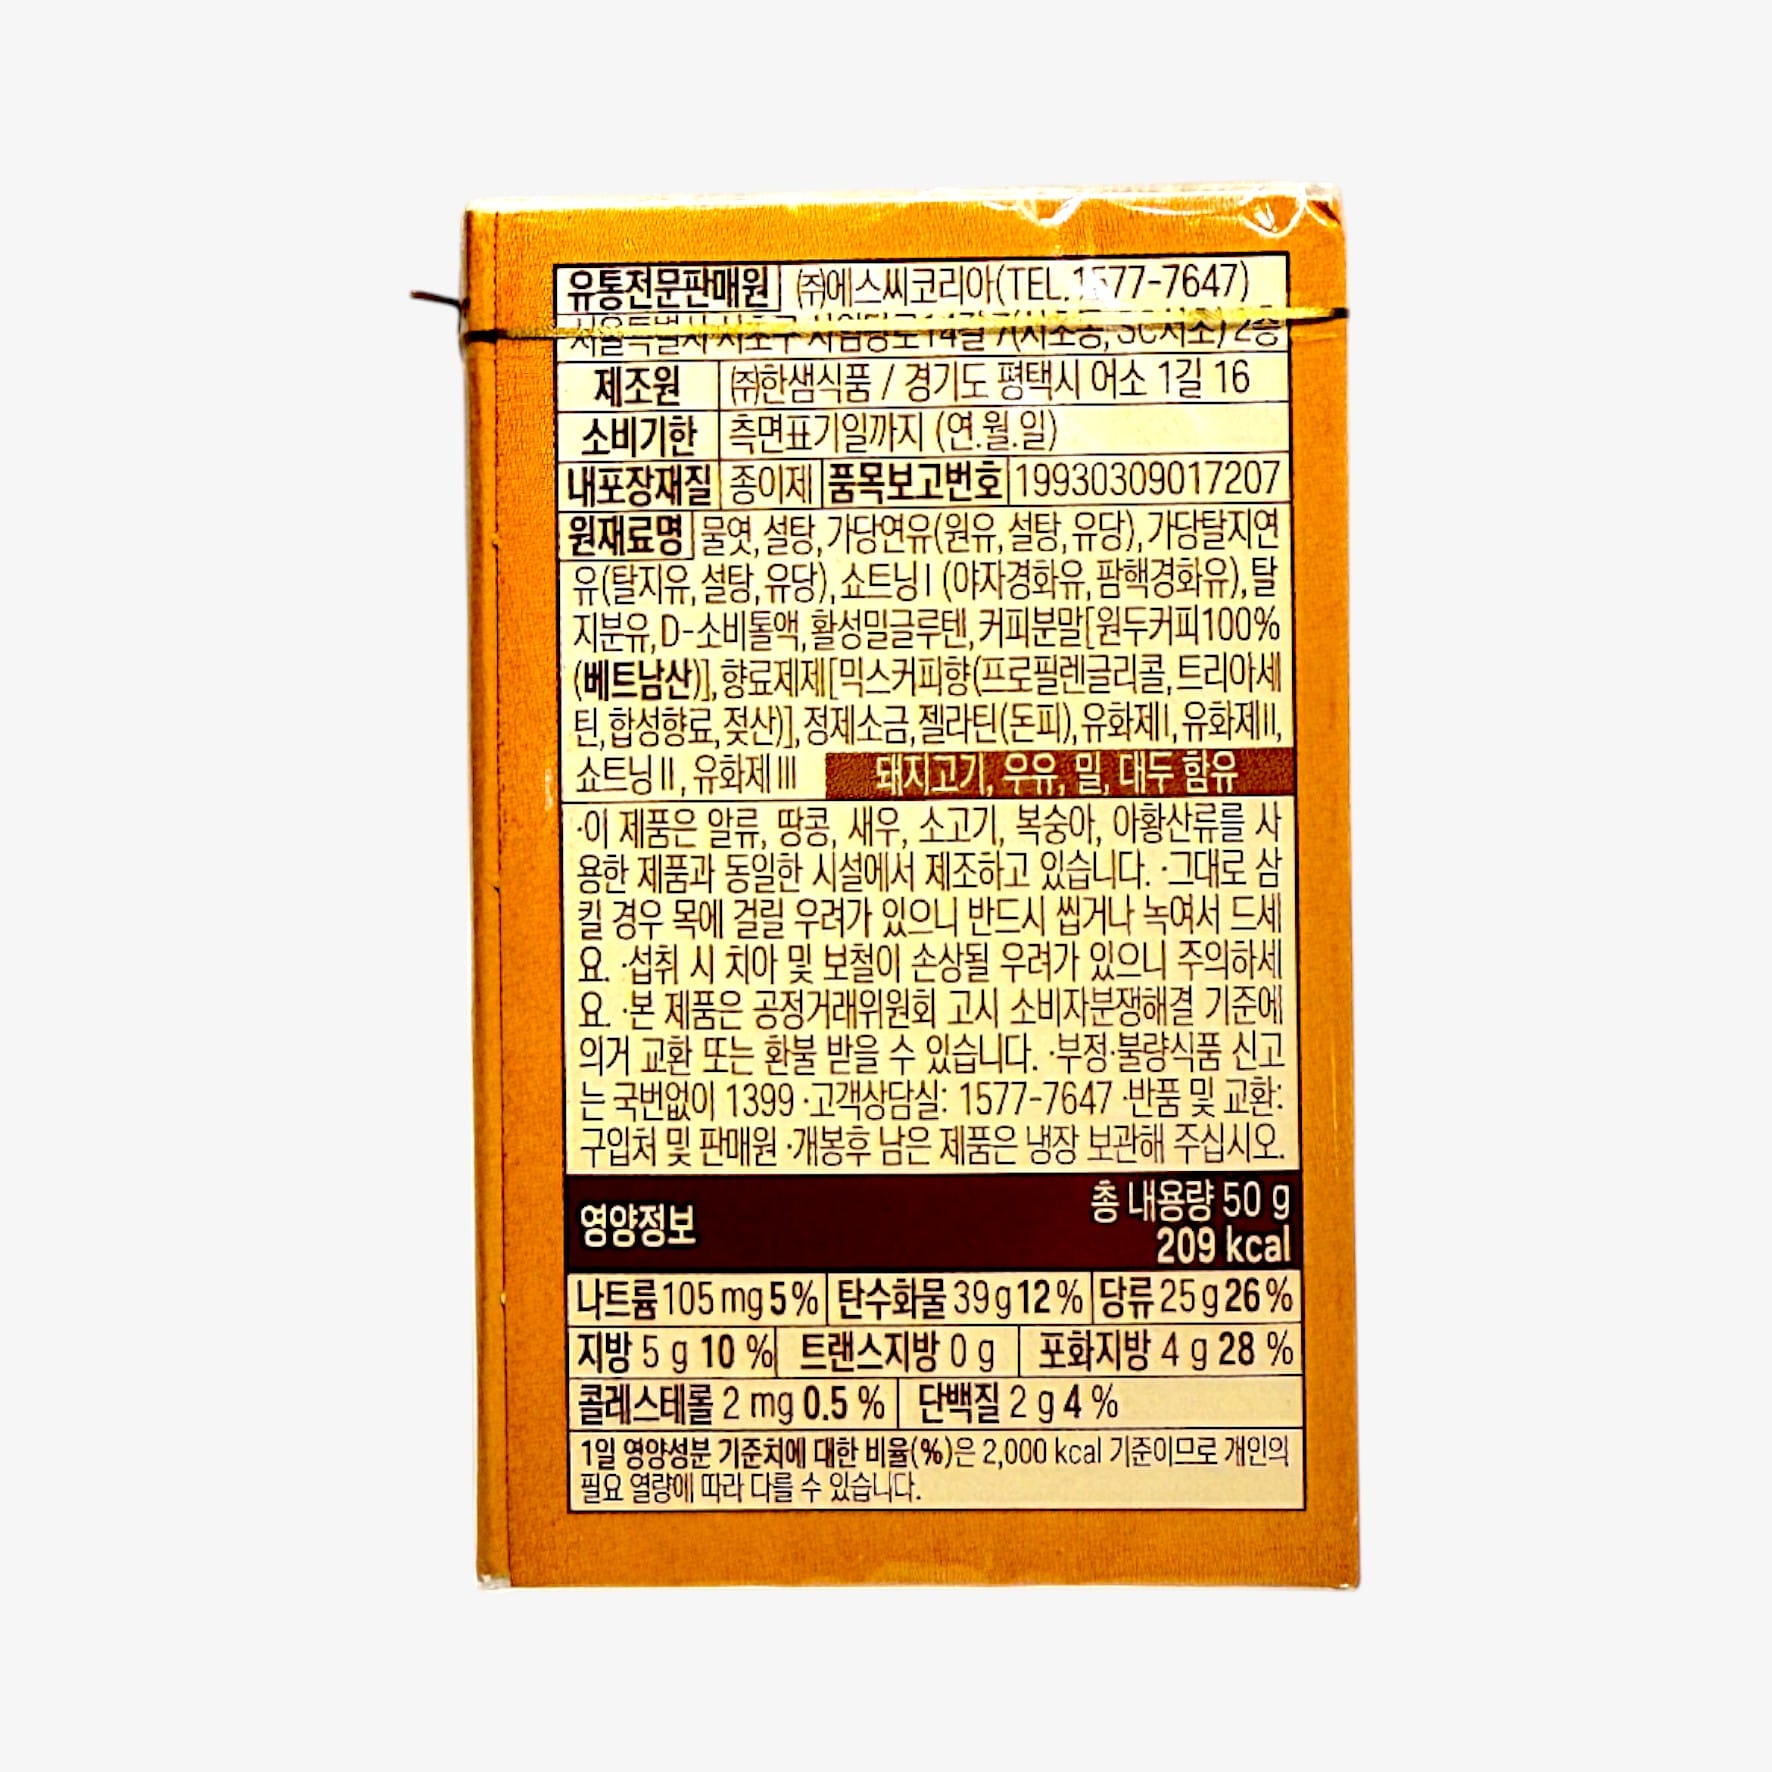 유통전문판매원 ㈜에스씨코리아(TEL.1577-7647)
서울특별시 서초구 14길 7(서초동, SC서초) 2층
제조원 ㈜한샘식품 / 경기도 평택시 어소 1길 16
소비기한 측면표기일까지 (연.월.일)
내포장재질 종이제 품목보고번호 19930309017207
원재료명 물엿, 설탕, 가당연유(원유, 설탕, 유당), 가당탈지연
유(탈지유, 설탕, 유당), 쇼트닝Ⅰ (야자경화유, 팜핵경화유), 탈
지분유, D-소비톨액, 활성밀글루텐, 커피분말[원두커피100%
(베트남산)], 향료제제[믹스커피향(프로필렌글리콜, 트리아세
틴, 합성향료, 젖산)], 정제소금, 젤라틴(돈피), 유화제Ⅰ, 유화제Ⅱ,
쇼트닝Ⅱ, 유화제Ⅲ 돼지고기, 우유, 밀, 대두 함유
·이 제품은 알류, 땅콩, 새우, 소고기, 복숭아, 아황산류를 사
용한 제품과 동일한 시설에서 제조하고 있습니다. ·그대로 삼
킬 경우 목에 걸릴 우려가 있으니 반드시 씹거나 녹여서 드세
요. ·섭취 시 치아 및 보철이 손상될 우려가 있으니 주의하세
요. ·본 제품은 공정거래위원회 고시 소비자분쟁해결 기준에
의거 교환 또는 환불 받을 수 있습니다. ·부정·불량식품 신고
는 국번없이 1399 ·고객상담실: 1577-7647 ·반품 및 교환:
구입처 및 판매원 ·개봉후 남은 제품은 냉장 보관해 주십시오.
영양정보 총 내용량 50 g
209 kcal
나트륨 105 mg 5 % 탄수화물 39 g 12 % 당류 25 g 26 %
지방 5 g 10 % 트랜스지방 0 g 포화지방 4 g 28 %
콜레스테롤 2 mg 0.5 % 단백질 2 g 4 %
1일 영양성분 기준치에 대한 비율(%)은 2,000 kcal 기준이므로 개인의
필요 열량에 따라 다를 수 있습니다.